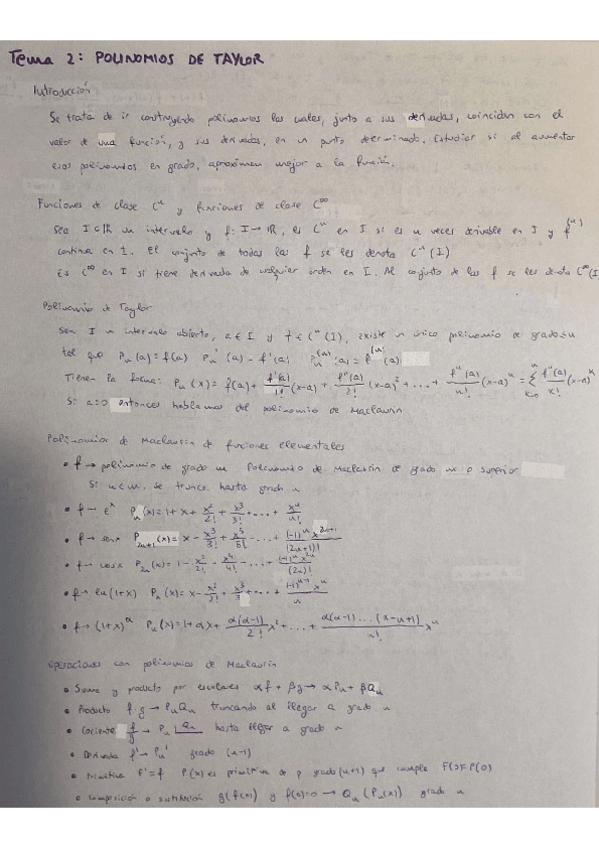 Tema 2: POLINOMIOS DE TAYLOR
Introducción
Se trata de ir construyendo polinomios los cuales, junto a sus derivadas, coincidan con el
valor de una función, y sus derivadas, en un punto determinado. Estudiar si al aumentar
esos polinomios en grado, aproximan mejor a la función.
Funciones de clase Cⁿ y funciones de clase C^∞
Sea I⊂ℝ un intervalo y f: I→ℝ, es Cⁿ en I si es n veces derivable en I y f^(n)
continua en I. El conjunto de todas las f se les denota Cⁿ(I)
Es C^∞ en I si tiene derivada de cualquier orden en I. Al conjunto de las f se les denota C^∞(I
Polinomio de Taylor
Sea I un intervalo abierto, a∈I y f∈Cⁿ(I), existe un único polinomio de grado≤n
tal que Pn(a)=f(a) Pn'(a)=f'(a) Pn^(n)(a)=f^(n)(a)
Tienen la forma: Pn(x)=f(a)+ f'(a)/1! (x-a)+ f''(a)/2! (x-a)²+...+ fⁿ(a)/n! (x-a)ⁿ = Σ k=0 n fⁿ(a)/k! (x-a)ⁿ
Si a=0 entonces hablamos del polinomio de Maclaurin
Polinomios de Maclaurin de funciones elementales
• f→polinomio de grado m Polinomio de Maclaurin de grado m o superior
Si n<m, se trunca hasta grado n
• f→ eˣ Pn(x)=1+x+ x²/2! + x³/3! +...+ xⁿ/n!
• f→ senx P2n+1(x)= x- x³/3! + x⁵/5! -...+ (-1)ⁿx^2n+1/(2n+1)!
• f→ cosx P2n(x)=1- x²/2! - x⁴/4! -...+ (-1)ⁿx^2n/(2n)!
• f→ ln(1+x) Pn(x)=x- x²/2 + x³/3 +...+ (-1)^n-1 xⁿ/n
• f→ (1+x)^α Pn(x)=1+αx+ α(α-1)/2! x²+...+ α(α-1)...(α-n+1)/n! xⁿ
Operaciones con polinomios de Maclaurin
• Suma y producto por escalares αf+βg→αPn+βQn
• Producto f·g→PnQn truncando al llegar a grado n
• Cociente f/g → Pn |Qn hasta llegar a grado n
• Derivada f'→Pn' grado (n-1)
• Primitiva F'=f P(x) es primitiva de p grado(n+1) que cumple F(0)=P(0)
• Composición o sustitución g(f(x)) y f(0)=0→Qn(Pn(x)) grado n